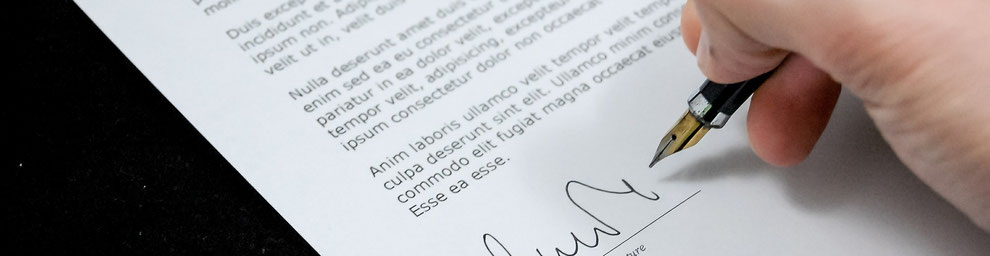 Duis excep
incididunt et
ipsum non. Adip
velit ut in, velit duis
Nulla deserunt amet duis
enim sed ea eu consectetur
pariatur in ea dolor velit, excep
tempor velit, adipisicing, excepteur
ipsum consectetur dolor non occaecat
Anim laboris ullamco velit tempor velit temp
culpa deserunt sint elit. Ullamco minim con
commodo elit fugiat magna occaecat eius
Esse ea esse.